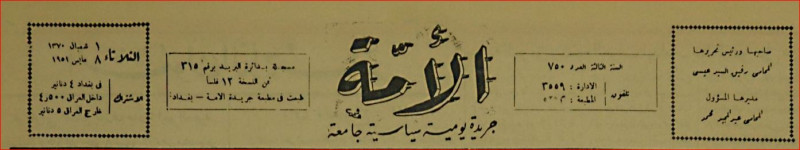 صاحبها ورئيس تحريرها
المحامي رفيق السيد عيسى
مديرها المسؤول
المحامي عبدالمجيد محمد
السنة الثالثة العدد ٧٥٠
تلفون
الادارة : ٣٥٥٩
المطبعة :
الأمّة
جريدة يومية سياسية جامعة
مسجلة بدائرة البريد برقم ٣١٥
ثمن النسخة ١٢ فلساً
طبعت في مطبعة جريدة الامة - بغداد
الثلاثاء
١ شعبان ١٣٧٠
٨ مايس ١٩٥١
الاشتراك
في بغداد ٤ دنانير
داخل العراق ٤٫٥٠٠
خارج العراق ٥ دنانير